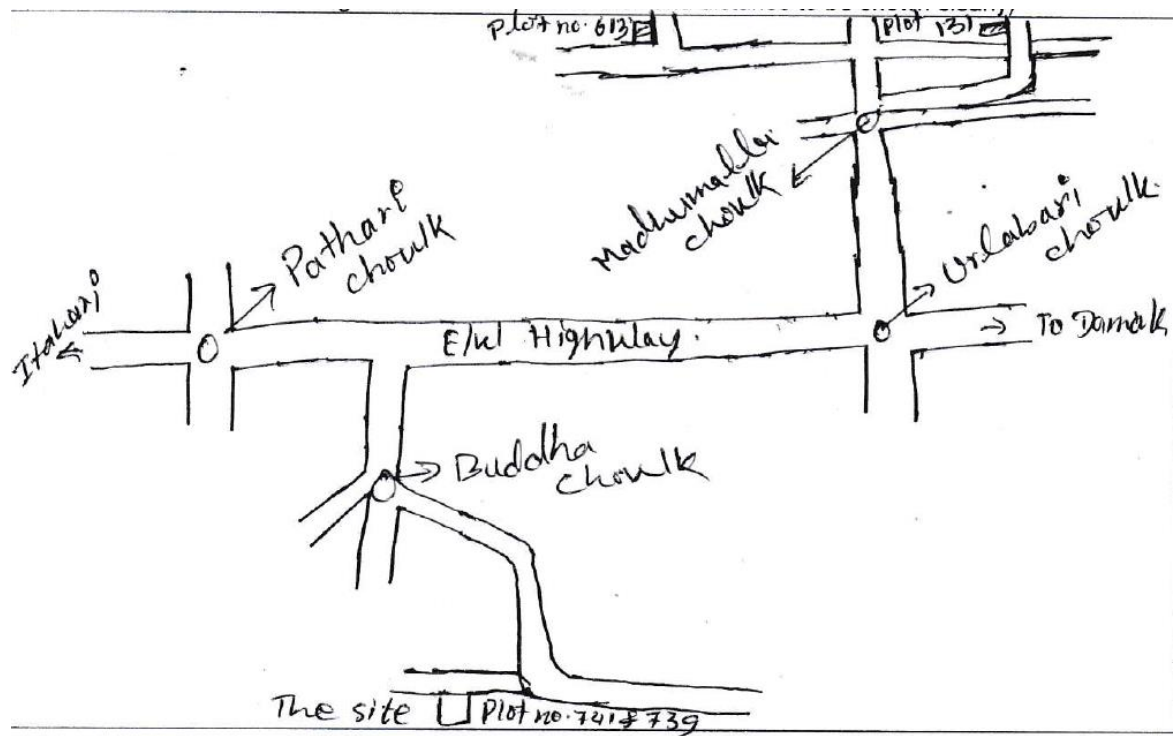 Plot no. 613
Plot 131
Madhumalla
choulk
Pathari
choulk
Urlabari
choulk.
Itahari
E/W Highway.
To Damak
Buddha
choulk
The site
Plot no. 741 & 739